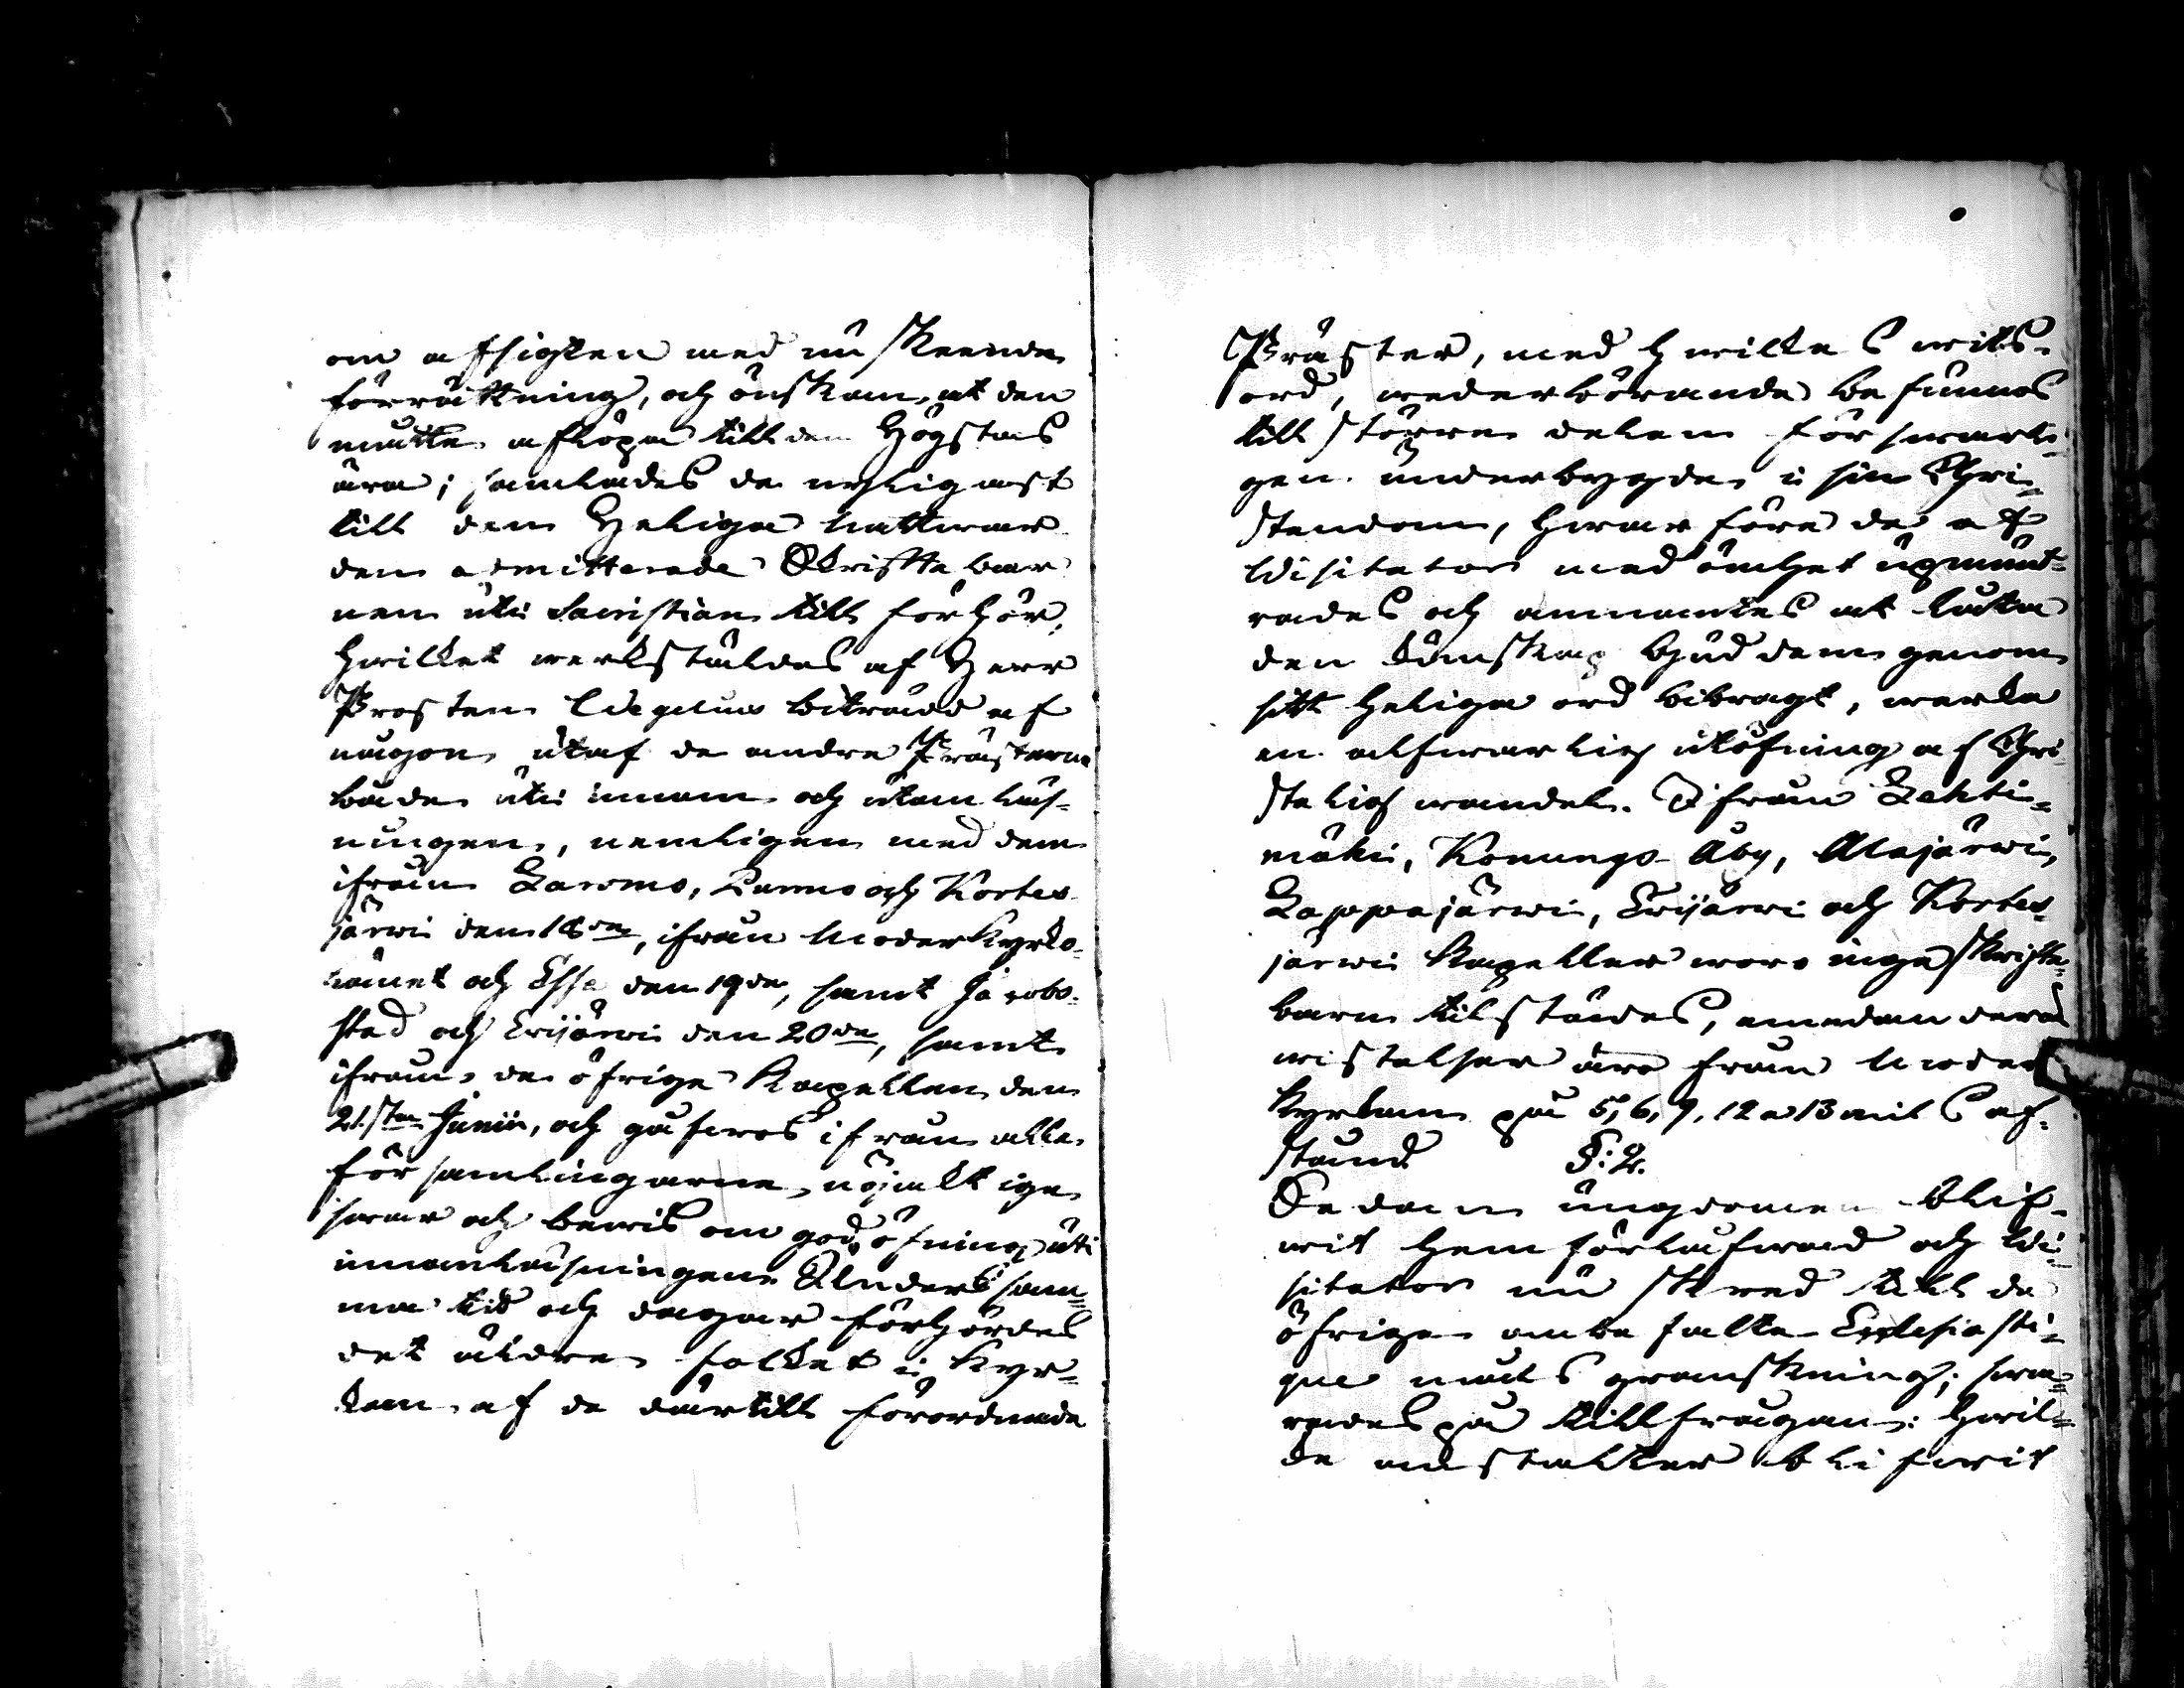 om afsigten med nu skeende
förrättning, och önskan, at den
måtte aflöpa till den Högstas
ära; samlades de nyligast
till den Heliga nattwar-
den admitterade Skriftebar-
nen uti Sacristian till förhör,
hwilket werkstäldes af Herr
Prosten Wegelius biträdd af
någon utaf de andra Prästerna
både uti innan och utan läs-
ningen, nemligen med dem
ifrån Larsmo, Purmo och Kortes-
järwi den 18de, ifrån Moderkyrko-
hemet och Esse den 19de, samt Jacobs-
stad och Ewijärwi den 20de, samt
ifrån de öfrige Kapellen den
21sta Junii, och gåfwos ifrån alla
församlingarne nöjaktige
swar och bewis om god öfning uti
innanläsningen. Under sam-
ma tid och dagar förhördes
det äldre folket i Kyr-
kan af de därtill förordnade
Präster, med hwilkas wits-
ord, wederbörande befunnos
till större delen förswarli-
gen underbygde i sin Chri-
stendom, hwarföre de af
Visitator med ömhet upmunt-
rades och anmantes at låta
den kunskap Gud dem genom
sitt heliga ord bibragt, werka
en alfwarlig utöfning af Chri-
stelig wandel. Ifrån Lehti-
mäki, Konungs-Åby, Alajärwi,
Lappajärwi, Ewijärwi och Kortes-
järwi Kapeller woro inga Skrifte-
barn tilstädes, emedan deras
wistelser äro från Moder
Kyrkan på 5, 6, 9, 12 a 13 mils af-
stånd. §: 2.
Sedan ungdomen blif-
wit hemförlåfwad och Vi-
sitator nu skred till de
öfrige anbefalte Ecclesiasti-
que måls granskning; swa-
rades på tillfrågan: hwil-
ka anstalter blifwit